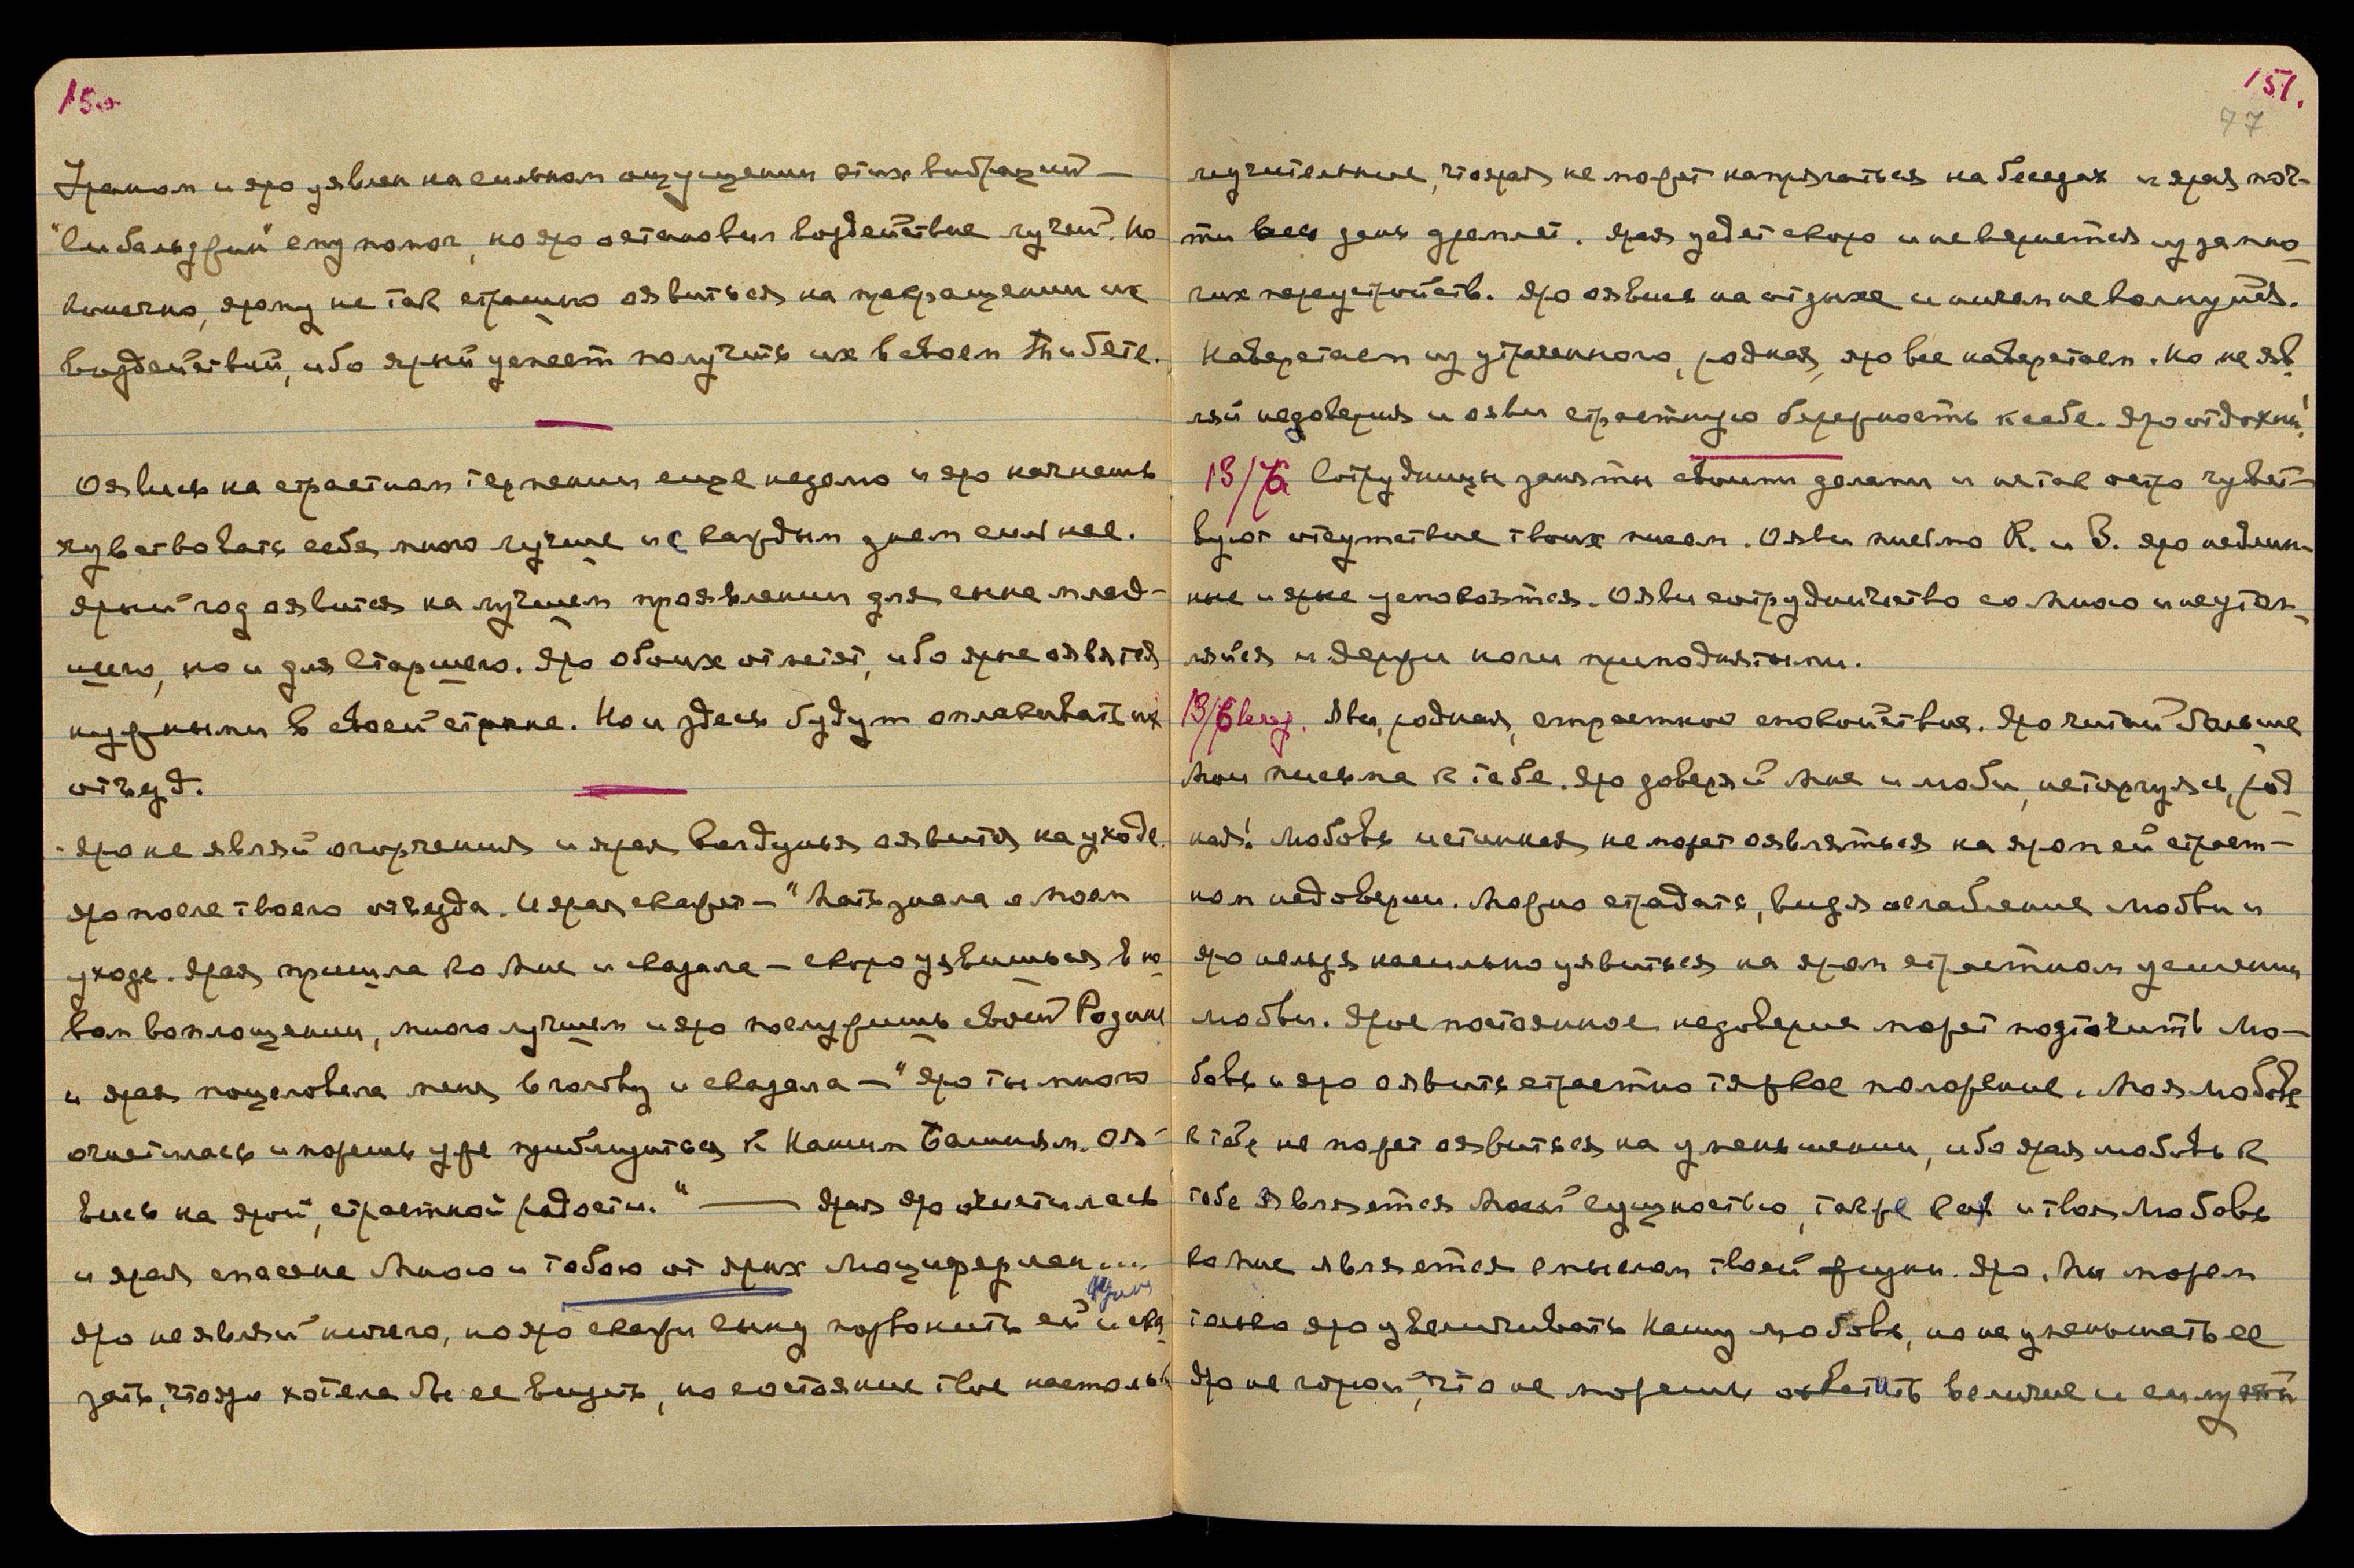 150
Ураном и яро уявлен на сильном ощущении этих вибраций —
"Либальджи" ему помог, но яро остановил воздействие лучей. Но
конечно, ярому не так страшно оявиться на прекращении их
воздействий, ибо ярый успеет получить их в своем Тибете.
Оявись на страстном терпении еще неделю и яро начнешь
чувствовать себя много лучше и с каждым днем сильнее.
Ярый год оявится на лучшем проявлении для сына млад-
шего, но и для Старшего. Яро обоих отметят, ибо ярые оявятся
нужными в своей стране. Но и здесь будут оплакивать их
отъезд.
Яро не являй огорчения и ярая Колдунья оявится на уходе.
яро после твоего отъезда. И ярая скажет — "Мать знала о моем
уходе. Ярая пришла ко Мне и сказала — скоро уявишься в но-
вом воплощении, много лучшем и яро послужишь своей Родине
и ярая поцеловала меня в голову и сказала — "Яро ты много
очистилась и можешь уже приблизиться к Нашим Башням. Оя-
вись на ярой, страстной радости." — Ярая яро очистилась
и ярая спасена Мною и тобою от ярых Люциферман....
Яро не являй ничего, но яро скажи сыну позвонить ей и ска-
зать, что яро хотела бы ее видеть, но состояние твое настолько
151.
77
мучительное, что ярая не может напрягаться на беседах и ярая поч-
ти весь день дремлет. Ярая уедет скоро и не вернется из за мно-
гих переустройств. Яро оявись на отдыхе и ничем не волнуйся.
Наверстаем из утраченного, родная, яро все наверстаем. Но не яв-
ляй недоверия иояви страстную бережность к себе. Яро отдохни!
13/6 Сотрудницы заняты своими делами и не так остро чувст-
вуют отсутствие твоих писем.Ояви письмо К. и В. яро недлин-
ные и ярые успокоятся. Ояви сотрудничество со Мною и не утом-
ляйся и держи ноги приподнятыми.
13/6 веч. Яви, родная, страстное спокойствие. Яро читай больше
Мои письма к тебе. Яро доверяй Мне и люби, не торгуясь, род-
ная! Любовь истинная не может оявляться на яром ей страст-
ном недоверии. Можно страдать, видя ослабление любви и
яро нельзя насильно уявиться на яром страстном усилении
любви. Ярое постоянное недоверие может подточить лю-
бовь и яро оявить страстно тяжкое положение. Моя любовь
к тебе не может оявиться на уменьшении, ибо ярая любовь к
тебе является Моей сущностью, также как и твоя Любовь
ко Мне является смыслом твоей жизни. Яро. Мы можем
только яро увеличивать Нашу любовь, но не уменьшать ее
Яро не горюй, что не можешь охватить величие и силу этой